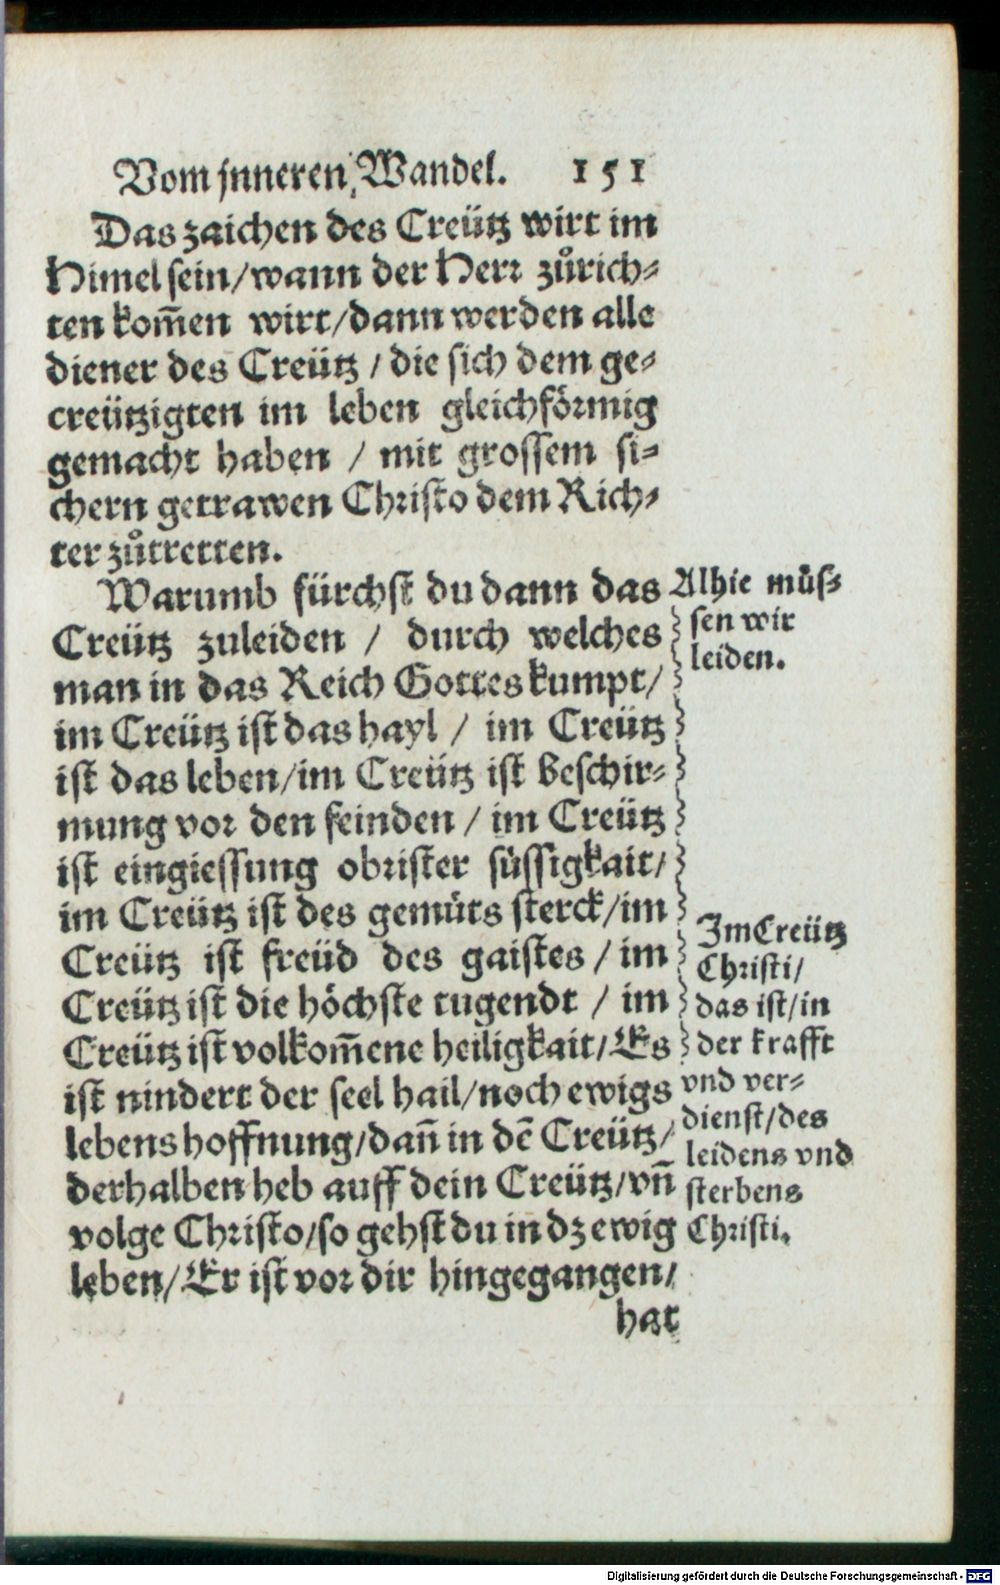 Vom jnneren Wandel. 151
Das zaichen des Creütz wirt im
Himel sein/wann der Herr zůrich-
ten kom̃en wirt/dann werden alle
diener des Creütz / die sich dem ge-
creützigten im leben gleichförmig
gemacht haben / mit grossem si-
chern getrawen Christo dem Rich-
ter zůtretten.
Warumb fürchst du dann das
Creütz zuleiden / durch welches
man in das Reich Gottes kumpt/
im Creütz ist das hayl / im Creütz
ist das leben/im Creütz ist beschir-
mung vor den feinden / im Creütz
ist eingiessung obrister süssigkait/
im Creütz ist des gemüts sterck/im
Creütz ist freüd des gaistes / im
Creütz ist die höchste tugendt / im
Creütz ist volkom̃ene heiligkait/Es
ist nindert der seel hail/noch ewigs
lebens hoffnung/dañ in dē Creütz/
derhalben heb auff dein Creütz/vñ
volge Christo/so gehst du in dz ewig
leben/Er ist vor dir hingegangen/
hat
Alhie müs-
sen wir
leiden.
Im Creütz
Christi/
das ist/in
der krafft
vnd ver-
dienst/des
leidens vnd
sterbens
Christi.
Digitalisierung gefördert durch die Deutsche Forschungsgemeinschaft - DFG